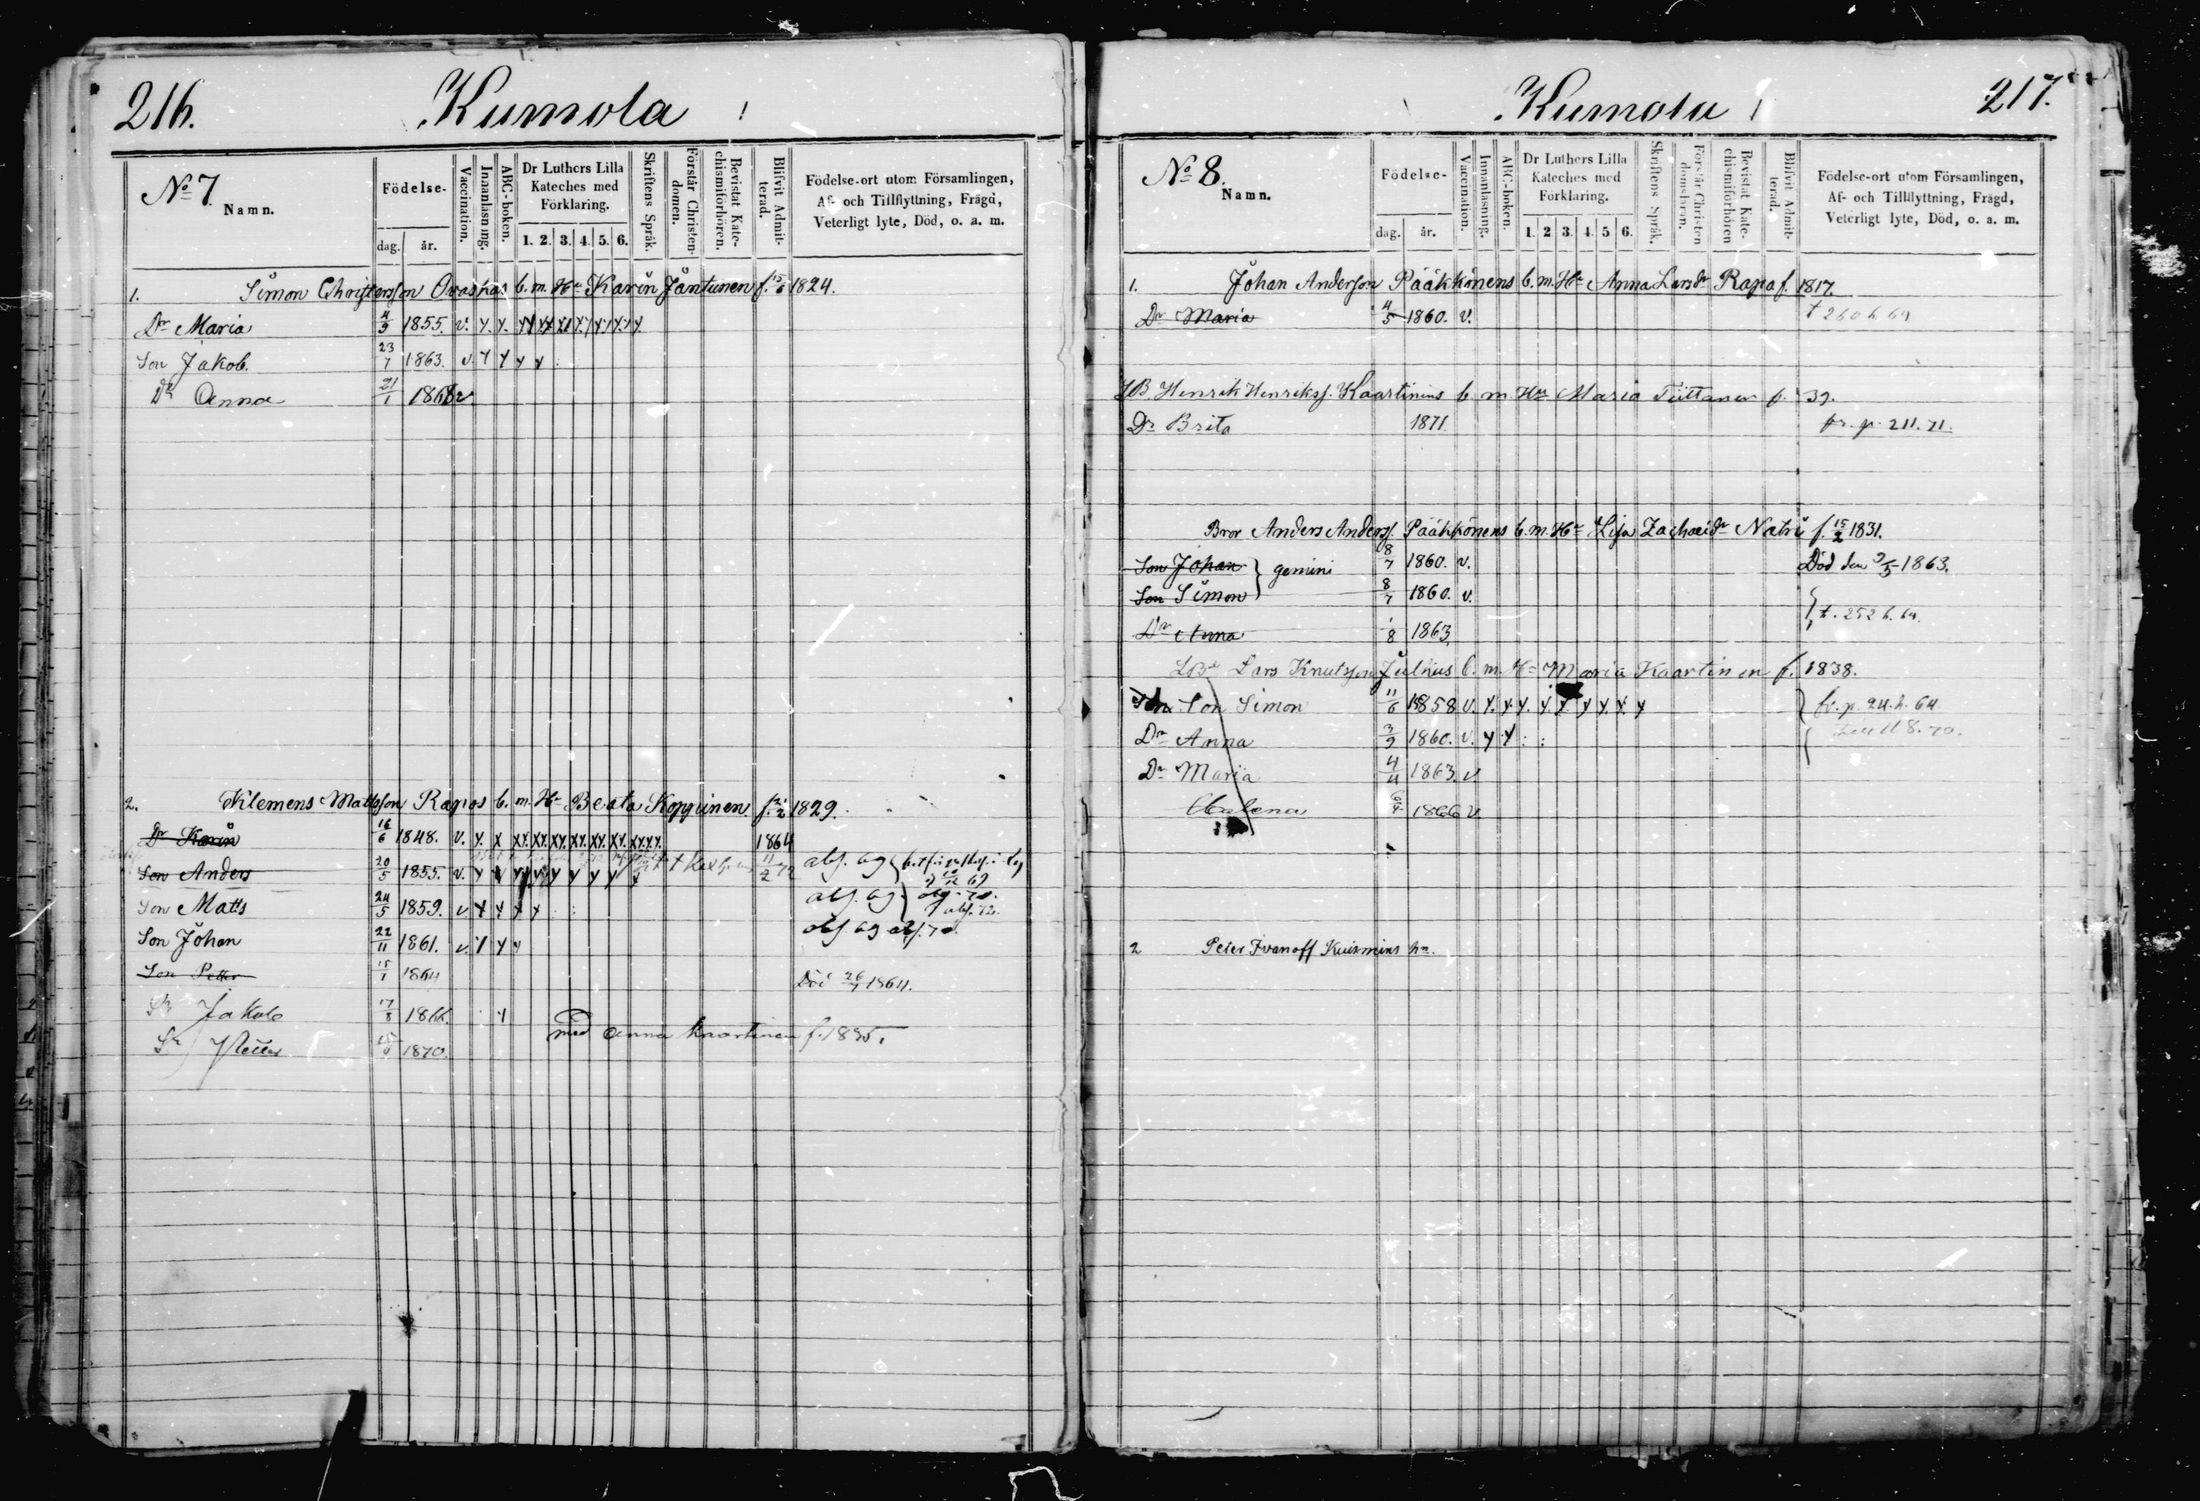 216. Kumola
No 7. Namn. Födelse- dag. år. Vaccination. Innanläsning. ABC-boken. Dr Luthers Lilla Kateches med Förklaring. 1. 2. 3. 4. 5. 6. Skriftens Språk. Förstår Christendomen. Bevistat Katechismiförhören. Blifvit Admitterad. Födelse-ort utom Församlingen, Af- och Tillflyttning, Frägd, Veterligt lyte, Död, o. a. m.
1. Simon Christersson Ovaskas b. m. Hu Karin Jäntunen f. 15/6 1824.
Dr Maria 4/9 1855. v. y. y.
Son Jakob. 23/7 1863. v. y y y y
Dr Anna 21/1 1868 v
2. Klemens Mattsson Rapos b. m. Hu Beata Koppinen f. 1829.
Dr Karin 16/6 1848. v. y. x 1864
Son Anders 20/5 1855. v. y
Son Matts 24/5 1859. v y y y y
Son Johan 22/11 1861. v. y y y
Son Petter 15/1 1864 Död 26/7 1864.
Sn Jakob 17/8 1866. y
med Anna Kaartinen f. 1835.
Sn Petter 1870.
217. Kumola
No 8. Namn. Födelse- dag. år. Vaccination. Innanläsning. ABC-boken. Dr Luthers Lilla Kateches med Förklaring. 1. 2 3. 4. 5 6. Skriftens Språk. Förstår Christendomsläran. Bevistat Katechismiförhören Blifvit Admitterad. Födelse-ort utom Församlingen, Af- och Tillflyttning, Frägd, Veterligt lyte, Död, o. a. m.
1. Johan Andersson Pääkkönens b. m. Hu Anna Larsdr Rapa f. 1817.
Dr Maria 4/5 1860. v. t 260 h. 69
Henrik Henrikss. Kaartinens b. m. Hu Maria Tiittanen f. 39.
Dr Brita 1871. fr. p. 211. 71.
Bror Anders Anderss. Pääkkönens b. m. Hu Lisa Zachaeidr Natri f. 15/2 1831.
Son Johan } gemini 8/7 1860. v. Död den 3/5 1863.
Son Simon 8/7 1860. v.
t. 252 h. 64.
Dr Anna 1/8 1863.
Lars Knutsson Julkus b. m. Hu Maria Kaartinen f. 1838.
Son Simon 11/6 1858 v. y. y. y. y. y y y. y. y fr. p. 24. h. 64
Dr Anna 3/9 1860. v. y y
Dr Maria 4/4 1863. v.
Helena 1866 v
2 Peter Ivanoff Kuismins hn.